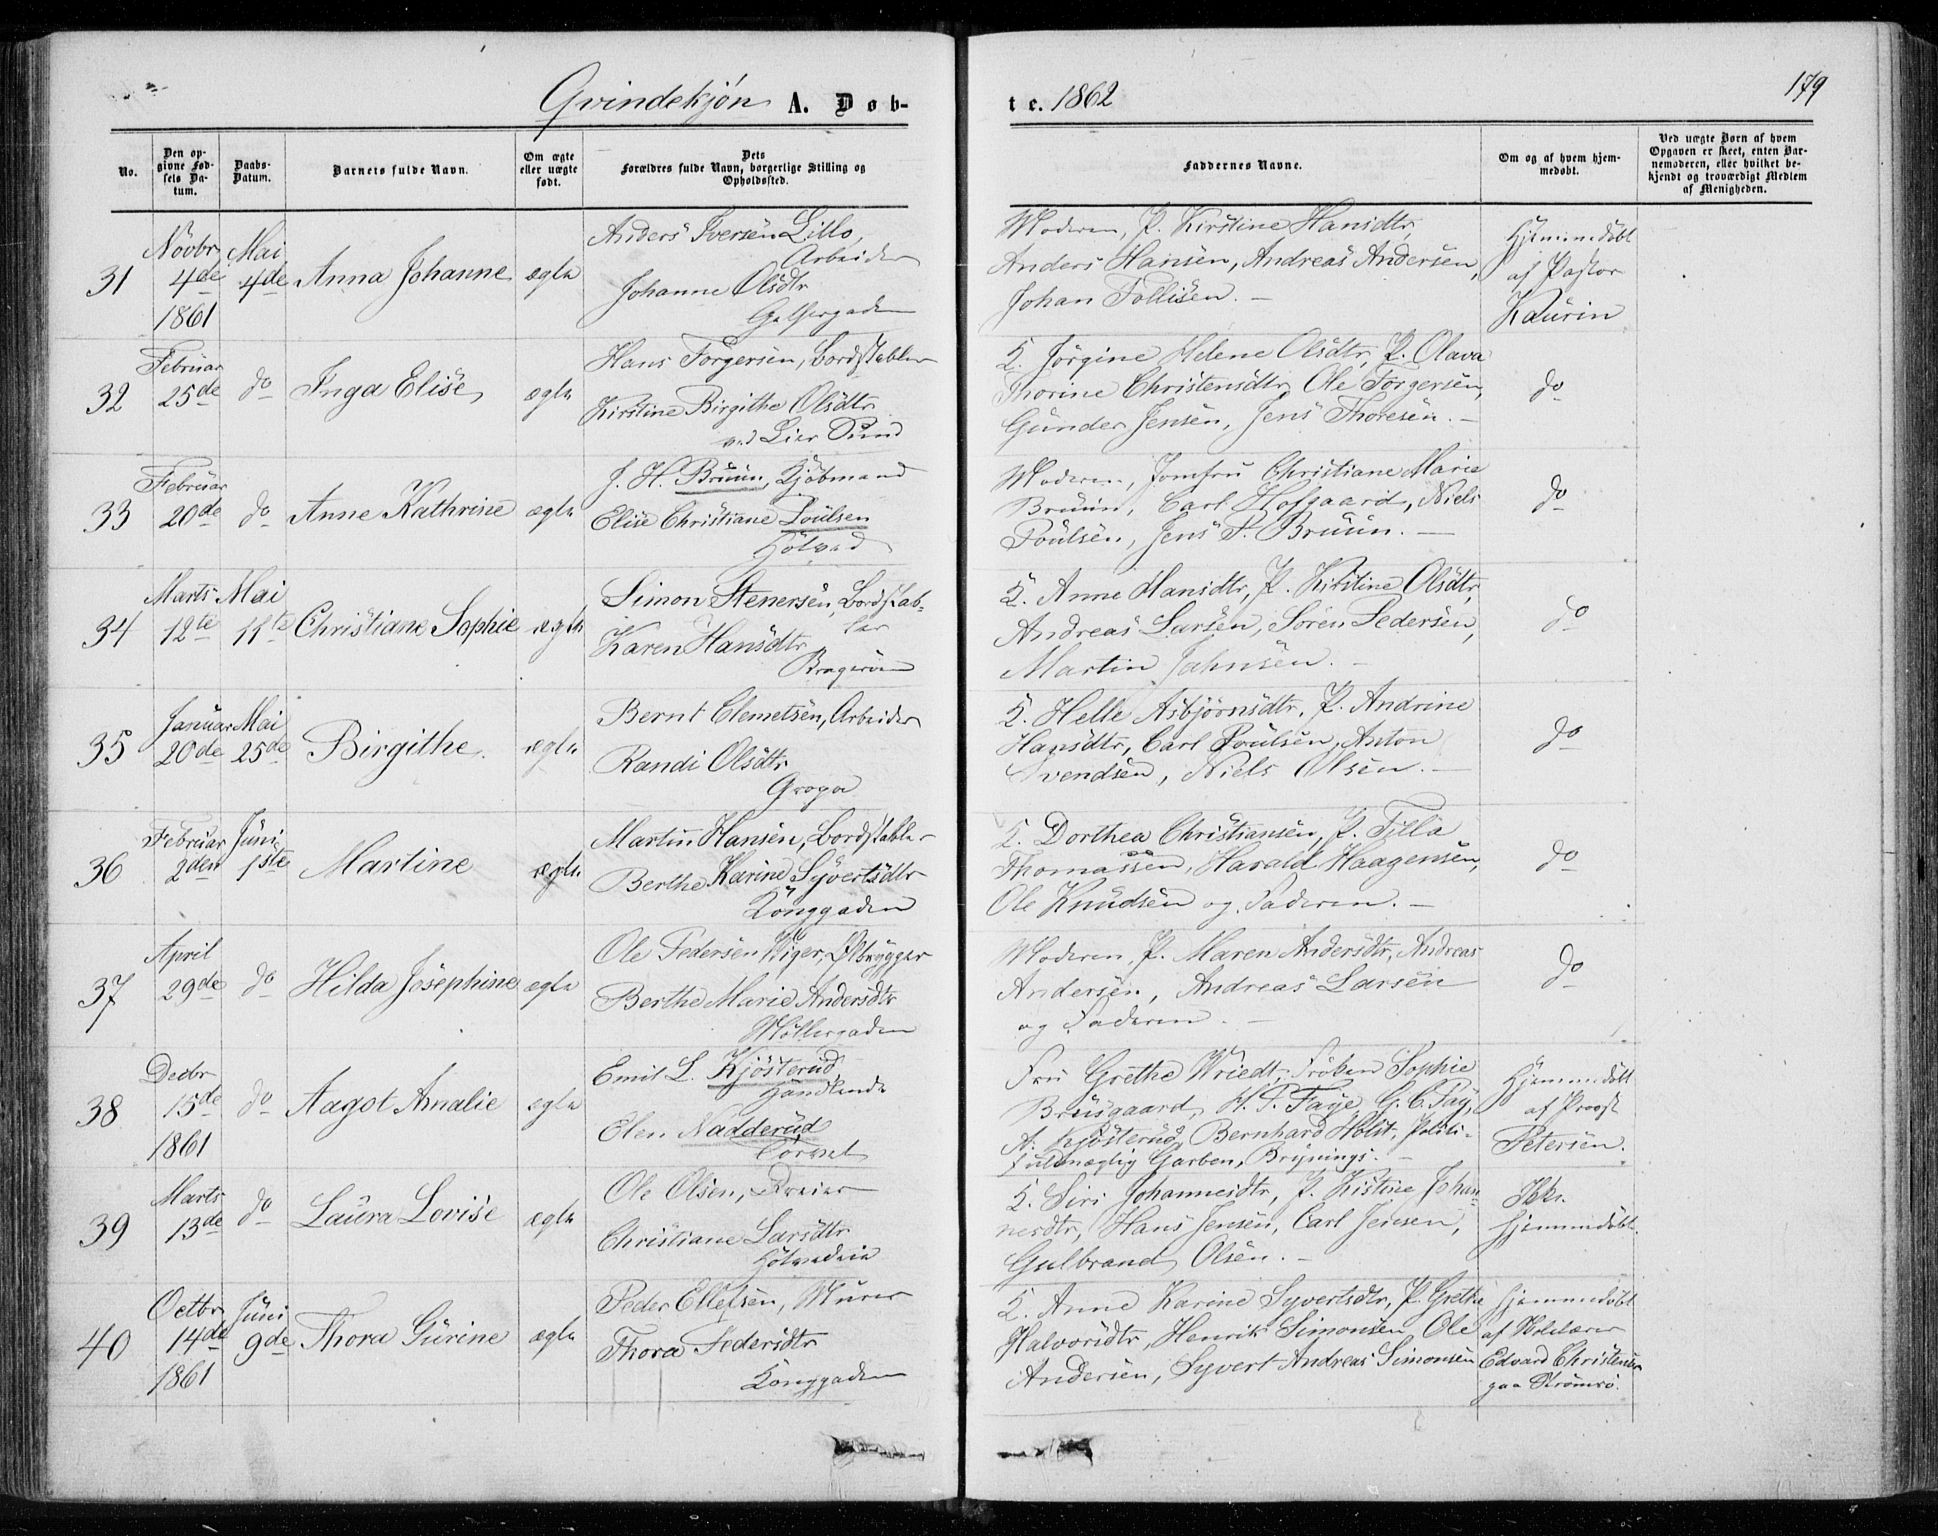 Qvindekjøn A. Døb-
te. 1862
179
No.
Den opgivne Fødsels Datum.
Daabs-Datum.
Barnets fulde Navn.
Om ægte eller uægte født.
Dets Forældres fulde Navn, borgerlige Stilling og Opholdssted.
Faddernes Navne.
Om og af hvem hjemmedøbt.
Ved uægte Børn af hvem Opgaven er skeet, enten Barnemoderen, eller hvilket bekjendt og troværdigt Medlem af Menigheden.
31
Novbr
4de
1861
Mai
4de
Anna Johanne
ægte
Anders Iversen Lillo,
Arbeider
Johanne Olsdtr
Moderen, P. Kirstine Hansdtr,
Anders Hansen, Andreas Andersen,
Johan Tollisen. –
Hjemmedøbt
af Pastor
Kaurin
32
Februar
25de
do
Inga Elise
ægte
Hans Torgersen, Bordstabler
Kirstine Birgithe Olsdtr
ved Lier Sund
K. Jørgine Helene Olsdtr, P. Olava
Thorine Christensdtr, Ole Torgersen,
Gunder Jensen, Jens Thoresen. –
do
33
Februar
20de
do
Anne Kathrine
ægte
J. H. Bruun, Kjøbmand
Elise Christiane Poulsen
Moderen, Jomfru Christiane Marie
Bruun, Carl Hofgaard, Niels
Poulsen, Jens P. Bruun. –
do
34
Marts
12te
Mai
11te
Christiane Sophie
ægte
Simon Stenersen, Bordstab-
ler
Karen Hansdtr
Bragerøen
K. Anne Hansdtr, P. Kirstine Olsdtr,
Andreas Larsen, Søren Pedersen,
Martin Jahnsen. –
do
35
Januar
20de
Mai
25de
Birgithe.
ægte
Bernt Clemetsen, Arbeider
Randi Olsdtr
Gropa
K. Helle Asbjørnsdtr, P. Andrine
Hansdtr, Carl Poulsen, Anton
Svendsen, Niels Olsen. –
do
36
Februar
2den
Juni
1ste
Martine
ægte
Martin Hansen, Bordstabler
Berthe Karine Syvertsdtr
Konggaden
K. Dorthea Christiansen, P. Tilla
Thomassen, Harald Haagensen,
Ole Knudsen og Faderen. –
do
37
April
29de
do
Hilda Josephine
ægte
Ole Pedersen Wiger, Ølbrygger
Berthe Marie Andersdtr
Møllergaden
Moderen, P. Maren Andersdtr, Andreas
Andersen, Andreas Larsen
og Faderen. –
do
38
Decbr
15de
1861
do
Aagot Amalie
ægte
Emil L. Kjøsterud
Handlende
Elen Nadderud
Torvet
Fru Grethe Wriedt, Frøken Sophie
Bruusgaard, H. P. Faye, G. C. Fay,
A. Kjøsterud, Bernhard Holst, Politi-
fuldmægtig Garben, Brynings. –
Hjemmedøbt
af Provst
Petersen.
39
Marts
13de
do
Laura Lovise
ægte
Ole Olsen, Dreier
Christiane Larsdtr
K. Siri Johannesdtr, P. Kistine Johan-
nesdtr, Hans Jensen, Carl Jensen,
Gulbrand Olsen. –
Ikke
hjemmedøbt.
40
Octbr
14de
1861
Juni
9de
Thora Gurine
ægte
Peder Ellefsen, Murer
Thora Pedersdtr
Konggaden
K. Anne Karine Syvertsdtr, P. Grethe
Halvorsdtr, Henrik Simonsen, Ole
Andersen, Syvert Andreas Simonsen
hjemmedøbt
af Skolelærer
Edvard Christensen
paa Strømsø.